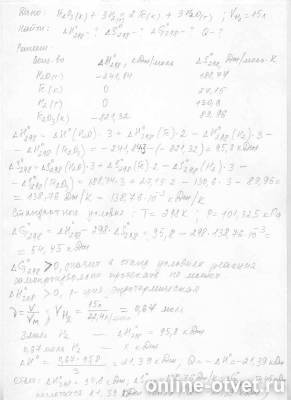 Дано: Fe₂O₃(к) + 3H₂(г) = 2Fe(к) + 3H₂O(г) ; V_H₂ = 15л
Найти: ΔH°₂₉₈ - ? ΔS°₂₉₈ - ? ΔG°₂₉₈ - ? Q - ?
Решен
Вещ-во ΔH°₂₉₈, кДж/моль S°₂₉₈, Дж/моль·К
H₂O(г) -241,84 188,74
Fe(к) 0 27,15
H₂(г) 0 130,6
Fe₂O₃(к) -821,32 89,96
ΔH°₂₉₈ = ΔH°(H₂O)·3 + ΔH°₂₉₈(Fe)·2 - ΔH°₂₉₈(H₂)·3 -
- ΔH°₂₉₈(Fe₂O₃) = -241,84·3 - (-821,32) = 95,8 кДж
ΔS°₂₉₈ = S°₂₉₈(H₂O)·3 + S°₂₉₈(Fe)·2 - S°₂₉₈(H₂)·3 -
- S°₂₉₈(Fe₂O₃) = 188,74·3 + 27,15·2 - 130,6·3 - 89,96 =
= 138,76 Дж/К = 138,76·10⁻³ кДж/К
Стандартные условия: T = 298К ; P = 101,325 кПа
ΔG°₂₉₈ = ΔH°₂₉₈ - 298·ΔS°₂₉₈ = 95,8 - 298·138,76·10⁻³ =
= 54,45 кДж
ΔG°₂₉₈ > 0, значит в станд. условиях реакция
самопроизвольно протекать не может
ΔH°₂₉₈ > 0, р-ция эндотермическая
ν = V/Vm ; ν_H₂ = 15л / 22,4л/моль = 0,67 моль
3 моль H₂ — ΔH°₂₉₈ = 95,8 кДж
0,67 моль H₂ — X кДж
ΔH° = 0,67·95,8 / 3 = 21,39 кДж, Q = -ΔH = -21,39 кДж
Ответ: ΔH°₂₉₈ = 95,8 кДж, ΔS°₂₉₈ = 138,76 Дж/К
21,39 кДж
online-otvet.ru